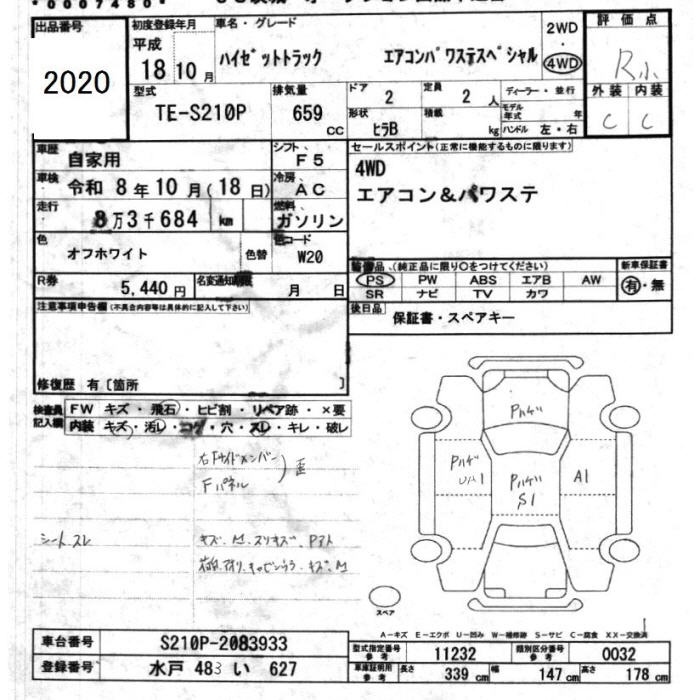 *0007480*
出品番号
2020
初度登録年月
平成
18 10 月
車名・グレード
ハイゼットトラック エアコンパワステスペシャル
2WD
・
4WD
評価点
R小
外装 内装
C C
型式
TE-S210P
排気量
659
CC
ドア
2
定員
2 人
形状
ヒラB
積載
kg
ディーラー・並行
モデル年式 年
ハンドル 左・右
車歴 自家用
シフト F5
車検 令和 8年10月(18日)
冷房 AC
走行 8万3千684 km
燃料 ガソリン
色 オフホワイト
色替
色コード W20
R券 5,440円
名変通知期限 月 日
セールスポイント(正常に機能するものに限ります)
4WD
エアコン&パワステ
装備品、(純正品に限り○をつけてください)
PS PW ABS エアB AW
SR ナビ TV カワ
新車保証書
有・無
後日品
保証書・スペアキー
注意事項申告欄(不具合内容等は具体的に記入して下さい)
修復歴 有〔箇所 〕
検査員記入欄
FW キズ・飛石・ヒビ割・リペア跡・×要
内装 キズ・汚レ・コゲ・穴・スレ・キレ・破レ
右Fサイドメンバー
Fパネル
歪
シートスレ
キズ、M、スリキズ、Pアト
Pハゲ
Pハゲ
UA1
Pハゲ
S1
A1
スペア
A-キズ E-エクボ U-凹み W-補修跡 S-サビ C-腐食 XX-交換済
車台番号 S210P-2083933
登録番号 水戸 483 い 627
型式指定番号 参考 11232
類別区分番号 参考 0032
車庫証明用 参考 長さ 339 cm 幅 147 cm 高さ 178 cm